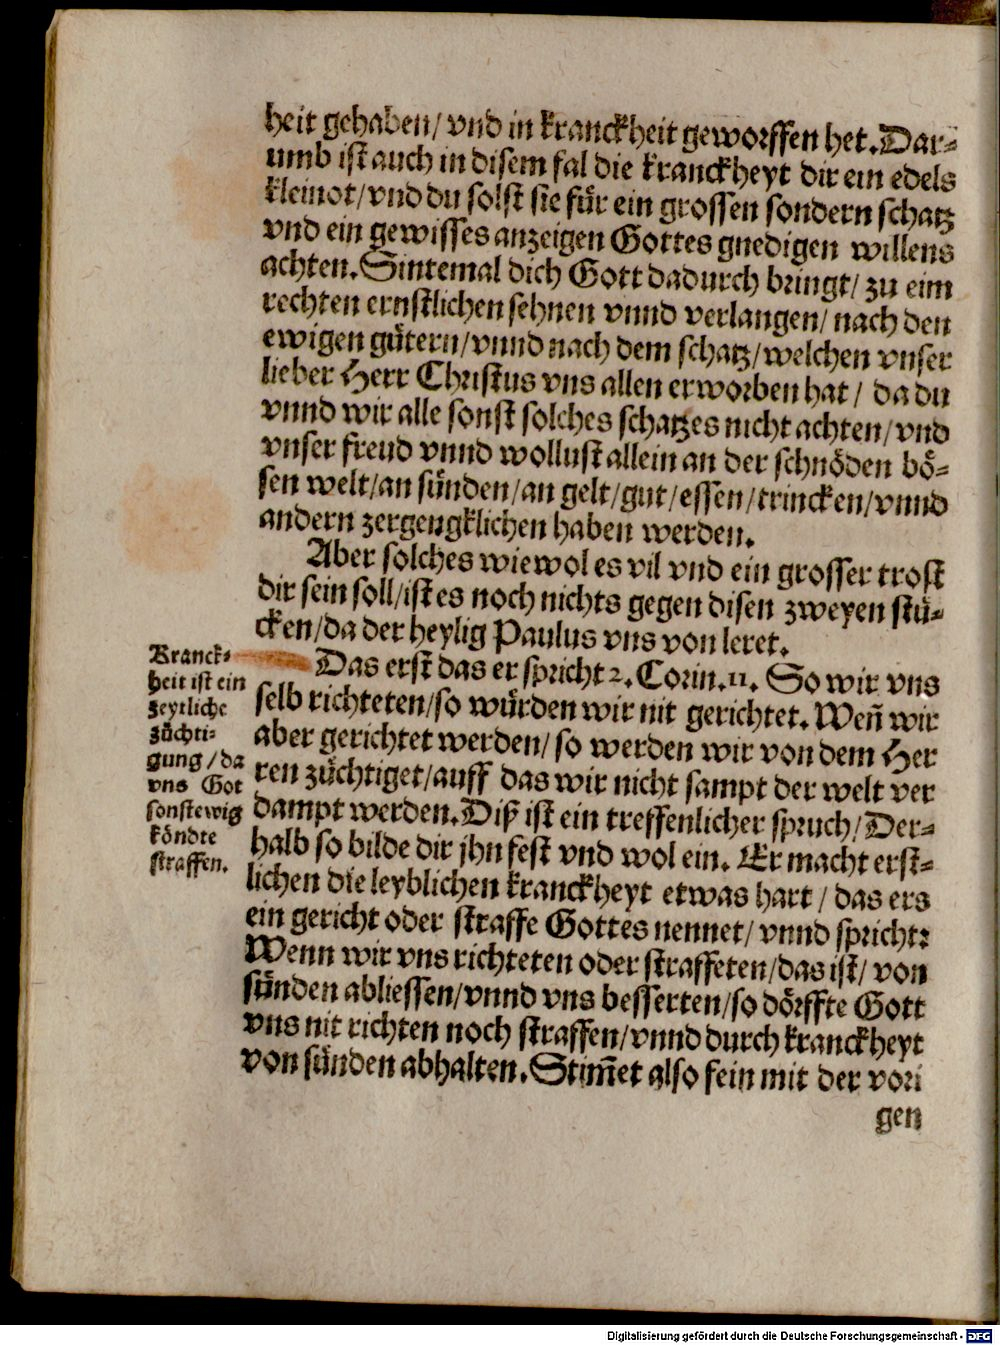 heit gehaben/ vnd in kranckheit geworffen het. Dar-
umb ist auch in disem fal die kranckheyt dir ein edels
kleinot/ vnd du solst sie für ein grossen sondern schatz
vnd ein gewisses anzeigen Gottes gnedigen willens
achten. Sintemal dich Gott dadurch bringt/ zu eim
rechten ernstlichen sehnen vnnd verlangen/ nach den
ewigen gütern/ vnnd nach dem schatz/ welchen vnser
lieber Herr Christus vns allen erworben hat/ da du
vnnd wir alle sonst solches schatzes nicht achten/ vnd
vnser freud vnnd wollust allein an der schnöden bö-
sen welt/ an sünden/ an gelt/ gut/ essen/ trincken/ vnnd
andern zergengklichen haben werden.
Aber solches wiewol es vil vnd ein grosser trost
dir sein soll/ ist es noch nichts gegen disen zweyen stü-
cken/ da der heylig Paulus vns von leret.
Das erst das er spricht 2. Corin. 11. So wir vns
selb richteten/ so würden wir nit gerichtet. Weñ wir
aber gerichtet werden/ so werden wir von dem Her
ren züchtiget/ auff das wir nicht sampt der welt ver
dampt werden. Diß ist ein treffenlicher spruch/ Der-
halb so bilde dir jhn fest vnd wol ein. Er macht erst-
lichen die leyblichen kranckheyt etwas hart/ das ers
ein gericht oder straffe Gottes nennet/ vnnd spricht:
Wenn wir vns richteten oder straffeten/ das ist/ von
sünden abliessen/ vnnd vns besserten/ so dörffte Gott
vns nit richten noch straffen/ vnnd durch kranckheyt
von sünden abhalten. Stim̃et also fein mit der vori
gen
Kranck-
heit ist ein
zeytliche
züchti-
gung/ da
vns Got
sonst ewig
köndte
straffen.
Digitalisierung gefördert durch die Deutsche Forschungsgemeinschaft - DFG